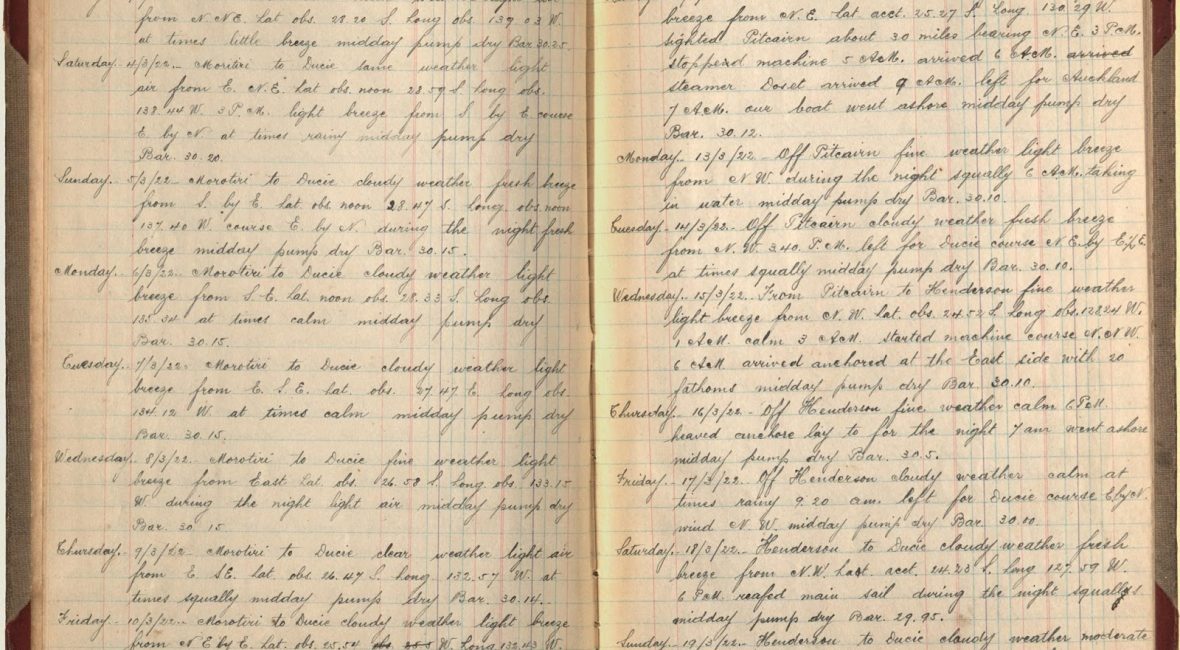 from N. NE. Lat obs. 28.20 S. Long obs. 139 03 W.
at times little breeze midday pump dry Bar. 30.25.
Saturday. 4/3/22.- Morotiri to Ducie same weather light
air from E. N.E. Lat obs. noon 28.59 S. Long obs.
138.44 W. 3 P.M. light breeze from S by E. course
E. by N. at times rainy midday pump dry
Bar. 30.20.
Sunday. 5/3/22- Morotiri to Ducie cloudy weather fresh breeze
from S. by E. Lat. obs. noon 28.47 S. Long. obs. noon
137.40 W. course E. by N. during the night fresh
breeze midday pump dry Bar. 30.15.
Monday. 6/3/22.- Morotiri to Ducie cloudy weather light
breeze from S.E. Lat. noon obs. 28.33 S. Long obs.
135.34 at times calm midday pump dry
Bar. 30.15.
Tuesday. 7/3/22. Morotiri to Ducie cloudy weather light
breeze from E. S.E. Lat. obs. 27.47 E. Long obs.
134.12 W. at times calm midday pump dry
Bar. 30.15.
Wednesday. 8/3/22. Morotiri to Ducie fine weather light
breeze from East Lat. obs. 26.58 S. Long. obs. 133.15
W. during the night light air midday pump dry
Bar. 30 15.
Thursday.- 9/3/22 - Morotiri to Ducie clear weather light air
from E SE. Lat. obs. 26.47 S. Long. 132.57 W. at
times squally midday pump dry Bar. 30.14.-
Friday.- 10/3/22.- Morotiri to Ducie cloudy weather light breeze
from N E by E. Lat obs. 25.54 W. Long 132.43 W.
breeze from N.E. Lat acct. 25.27 S. Long. 130.29 W.
sighted Pitcairn about 30 miles bearing N.E. 3 P.M.
stopped machine 5 A.M. arrived 6 A.M. arrived
steamer Doset arrived 9 A.M. left for Auckland
7 A.M. our boat went ashore midday pump dry
Bar. 30.12.
Monday.- 13/3/22 - Off Pitcairn fine weather light breeze
from N.W. during the night squally 6 A.M. taking
in water midday pump dry Bar. 30.10.
Tuesday.- 14/3/22.- Off Pitcairn cloudy weather fresh breeze
from N.W. 3.40. P.M. left for Ducie course N.E. by E.½E.
at times squally midday pump dry Bar. 30.10.
Wednesday. 15/3/22.- From Pitcairn to Henderson fine weather
light breeze from N.W. Lat. obs. 24.52 S. Long obs. 128.24 W.
1 A.M. calm 3 A.M. started machine course N.N.W.
6 A.M arrived anchored at the East side with 20
fathoms midday pump dry Bar. 30.10.
Thursday.- 16/3/22.- Off Henderson fine weather calm 6 P.M.
heaved anchore lay to for the night 7 am went ashore
midday pump dry Bar. 30.5.
Friday.- 17/3/22. Off Henderson cloudy weather calm at
times rainy 9.20 a.m. left for Ducie course E by N.
wind N.W. midday pump dry Bar. 30.10.
Saturday.- 18/3/22.- Henderson to Ducie cloudy weather fresh
breeze from N.W. Lat. acct. 24.23 S. Long 127.59 W.
6 P.M. reafed main sail during the night squally
midday pump dry Bar. 29.95.
Sunday.- 19/3/22.- Henderson to Ducie cloudy weather moderate